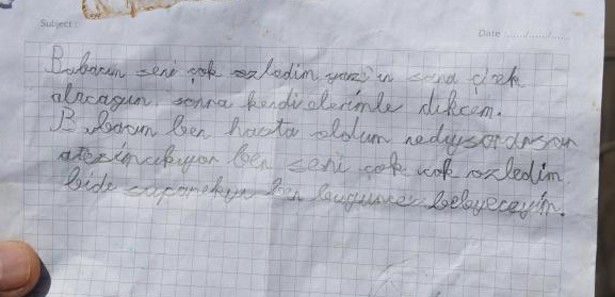 Subject:
Date ....../....../......
Babacım seni çok özledim yarın sana çicek
alacağım. sonra kendi elerimle dikcem.
Babacım ben hasta oldum nediysordrson
ateşim çıkıyor ben seni çok çok özledim
bide ben bugunce bekleyeceyim.